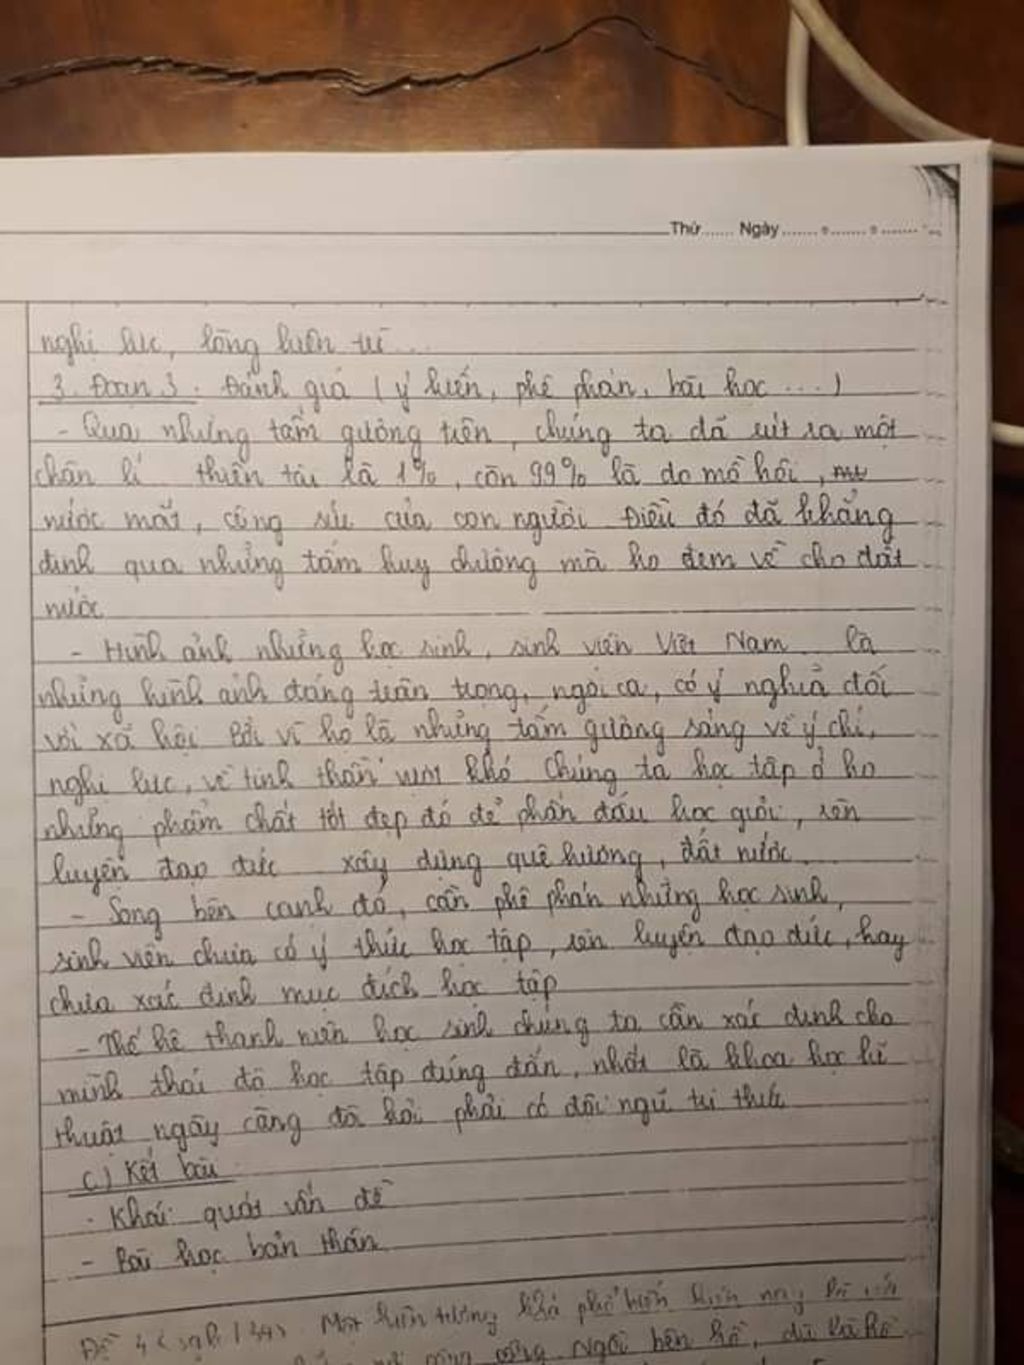 Thứ...... Ngày.......
nghị lực, lòng kiên trì...
3. Đoạn 3. Đánh giá (ý kiến, phê phán, bài học ....)
- Qua những tấm gương trên, chúng ta đã rút ra một
chân lí thiên tài là 1%, còn 99% là do mồ hôi,
nước mắt, công sức của con người. Điều đó đã khẳng
định qua những tấm huy chương mà họ đem về cho đất
nước
- Hình ảnh những học sinh, sinh viên Việt Nam là
những hình ảnh đáng trân trọng, ngợi ca, có ý nghĩa đối
với xã hội. Bởi vì họ là những tấm gương sáng về ý chí,
nghị lực, về tinh thần vượt khó. Chúng ta học tập ở họ
những phẩm chất tốt đẹp đó để phấn đấu học giỏi, rèn
luyện đạo đức xây dựng quê hương, đất nước...
- Song bên cạnh đó, cần phê phán những học sinh,
sinh viên chưa có ý thức học tập, rèn luyện đạo đức, hay
chưa xác định mục đích học tập
- Thế hệ thanh niên học sinh chúng ta cần xác định cho
mình thái độ học tập đúng đắn, nhất là khoa học kĩ
thuật ngày càng đòi hỏi phải có đội ngũ tri thức
c) Kết bài
- Khái quát vấn đề
- Bài học bản thân
Đề 4 Một hiện tượng khá phổ biến hiện nay là vứt
ngồi bên hồ, dù là hồ